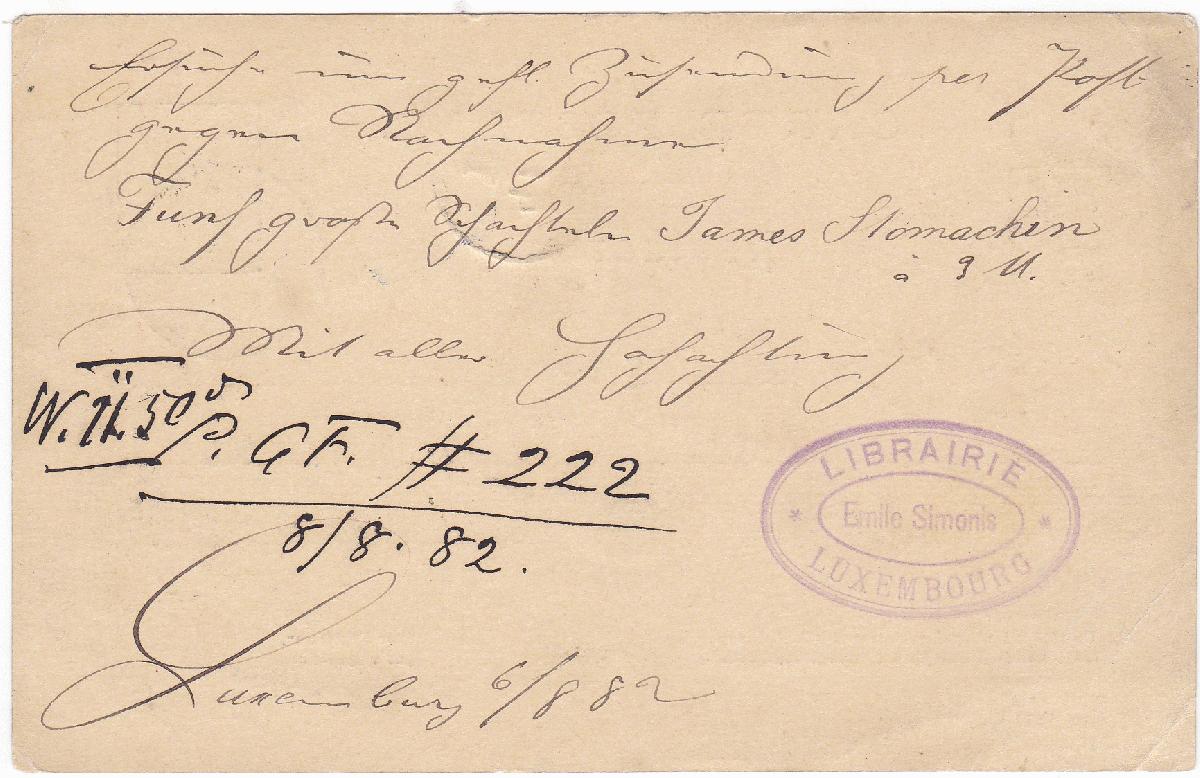 Ersuche um gefl. Zusendung per Post
gegen Nachnahme
Fünf große Schachteln James Stomachin
à 9 M.
Mit aller Hochachtung
P. GF. # 222
8/8. 82.
LIBRAIRIE
* Emile Simonis *
LUXEMBOURG
Luxemburg 6/8 82